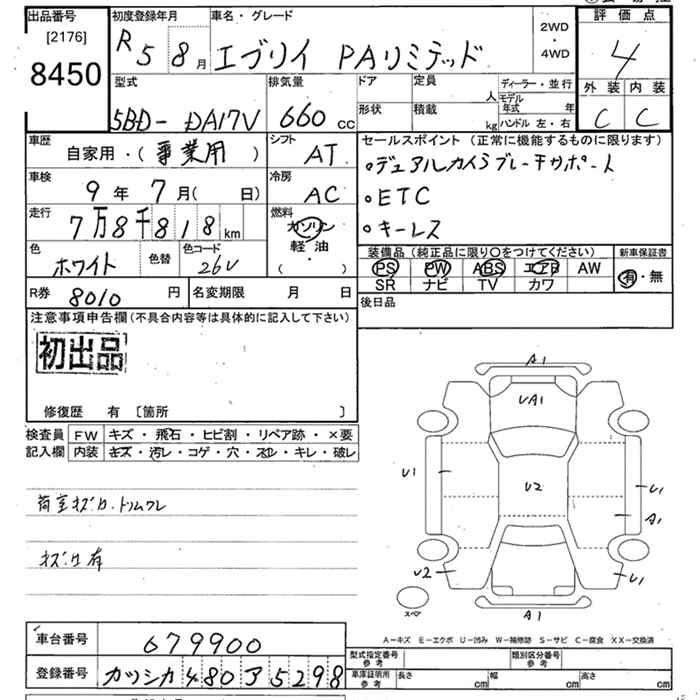 出品番号
[2176]
8450
初度登録年月
R5 8月
車名・グレード
エブリイ PAリミテッド
2WD
・
4WD
評価点
4
外装 内装
C C
型式
5BD-DA17V
排気量
660 cc
ドア
形状
定員
人
積載
kg
ディーラー・並行
モデル年式 年
ハンドル 左・右
車歴
自家用・(事業用)
シフト
AT
車検
9年 7月( 日)
冷房
AC
走行
7万8千818 km
燃料
ガソリン
軽・油
( )
色
ホワイト
色替
色コード
26V
R券 8010 円
名変期限 月 日
セールスポイント(正常に機能するものに限ります)
・デュアルカメラブレーキサポート
・ETC
・キーレス
装備品(純正品に限り〇をつけてください)
PS PW ABS エアB AW
SR ナビ TV カワ
新車保証書
有・無
後日品
注意事項申告欄(不具合内容等は具体的に記入して下さい)
初出品
修復歴 有 〔箇所 〕
検査員記入欄
FW キズ・飛石・ヒビ割・リペア跡・×要
内装 キズ・汚レ・コゲ・穴・スレ・キレ・破レ
荷室キズカ・トリムワレ
キズ・ワ有
A1
UA1
U1
U2
U1
A1
U2
U1
A1
スペア
A−キズ E−エクボ U−凹み W−補修跡 S−サビ C−腐食 XX−交換済
車台番号 679900
登録番号 カツシカ480ア5298
型式指定番号
参考
類別区分番号
参考
車庫証明用
参考
長さ cm
幅 cm
高さ cm